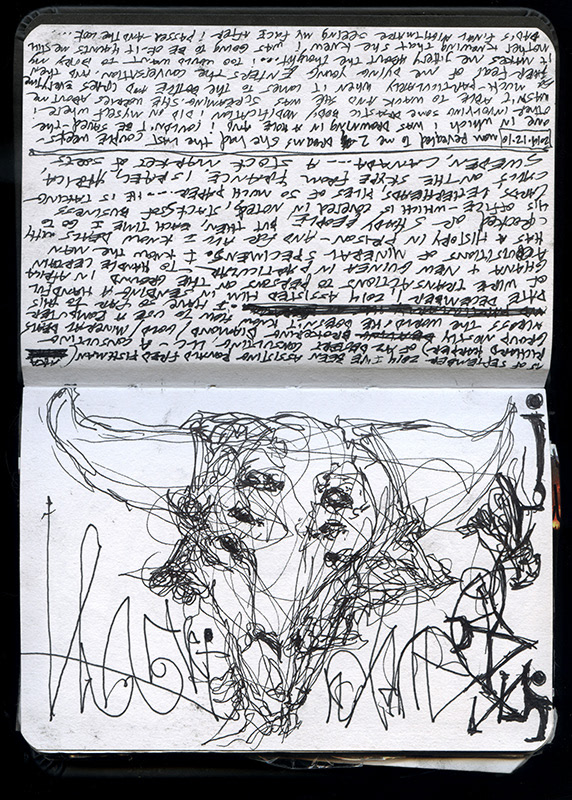 AS OF SEPTEMBER 2014 I'VE BEEN ASSISTING FRED FISHMAN (AKA
RICHARD HARPER) OF XYZ DESERT CONSULTING LLC - A CONSULTING
GROUP MOSTLY BROKERING DIAMOND/GOLD/MINERAL DEALS
ACROSS THE WORLD. HE DOESN'T KNOW HOW TO USE A COMPUTER
I HAVE SO FAR TO THIS
DATE DECEMBER 1 2014 ASSISTED HIM IN SENDING A HANDFUL
OF WIRE TRANSACTIONS TO PERSONS ON THE GROUND IN AFRICA
GHANA + NEW GUINEA IN PARTICULAR - TO HANDLE CERTAIN
ACQUISITIONS OF MINERAL SPECIMENS. I KNOW THE MAN
HAS A HISTORY IN PRISON - AND FOR ALL I KNOW DEALS WITH
CROOKED OR SHADY PEOPLE BUT THEN EACH TIME I GO TO
HIS OFFICE WHICH IS COVERED IN NOTES, STACKS OF BUSINESS
CARDS LETTERHEADS PILES OF SO MUCH PAPER.... HE IS TAKING
CALLS ON THE SKYPE FROM FRANCE, ISRAEL, AFRICA,
SWEDEN CANADA .... A STOCK MARKET OF SORTS
2014.12.10 MOM RELAYED TO ME 2 DREAMS SHE HAD THE LAST COUPLE WEEKS
ONE IN WHICH I WAS DROWNING IN A HOLE AND I COULDN'T BE SAVED THE
OTHER INVOLVING SOME DRASTIC BODY MODIFICATION I DID ON MYSELF WHERE I
WASN'T ABLE TO AND SHE WAS SCREAMING. SHE WORRIES ABOUT ME
SO MUCH - PARTICULARLY WHEN IT COMES TO THE BOTTLE AND EVERYTIME
FEAR OF ME DYING YOUNG ENTERS THE CONVERSATION AND THEN
IT MAKES ME JITTERY ABOUT THE THOUGHT.... I TOO WOULD WANT TO BURY MY
MOTHER KNOWING THAT SHE KNEW I WAS GOING TO BE OK IT HAUNTS ME STILL
DAD'S FINAL NIGHTMARE SEEING MY FACE AFTER I PASSED AND THE LOOK.